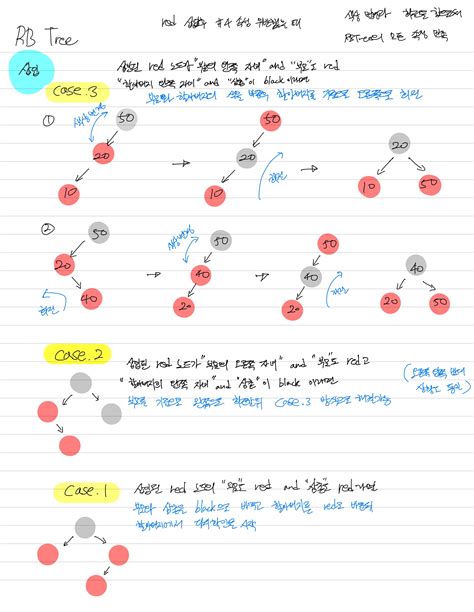 RB Tree
red 삽입후 #4 속성 위반했을 때
색상 변경과 회전을 활용해서
RBT에서의 모든 속성 만족
삽입
case.3
삽입된 red 노드가 "부모의 왼쪽 자녀" and "부모"도 red
"할아버지의 왼쪽 자녀" and "삼촌"이 black 이라면
부모와 할아버지의 색을 바꾼후 할아버지를 기준으로 오른쪽으로 회전
①
색상변경
50
20
10
50
20
10
회전
20
10
50
②
50
20
40
회전
색상변경
50
40
20
50
40
20
회전
40
20
50
case.2
삽입된 red 노드가 "부모의 오른쪽 자녀" and "부모"도 red고
"할아버지의 왼쪽 자녀" and "삼촌"이 black 이라면
부모를 기준으로 왼쪽으로 회전한뒤 case.3 방식으로 해결가능
(오른쪽 왼쪽 반대
상황도 동일)
case.1
삽입된 red 노드의 "부모"도 red and "삼촌"도 red라면
부모와 삼촌을 black으로 바꾸고 할아버지를 red로 변경뒤
할아버지에서 다시 확인을 시작